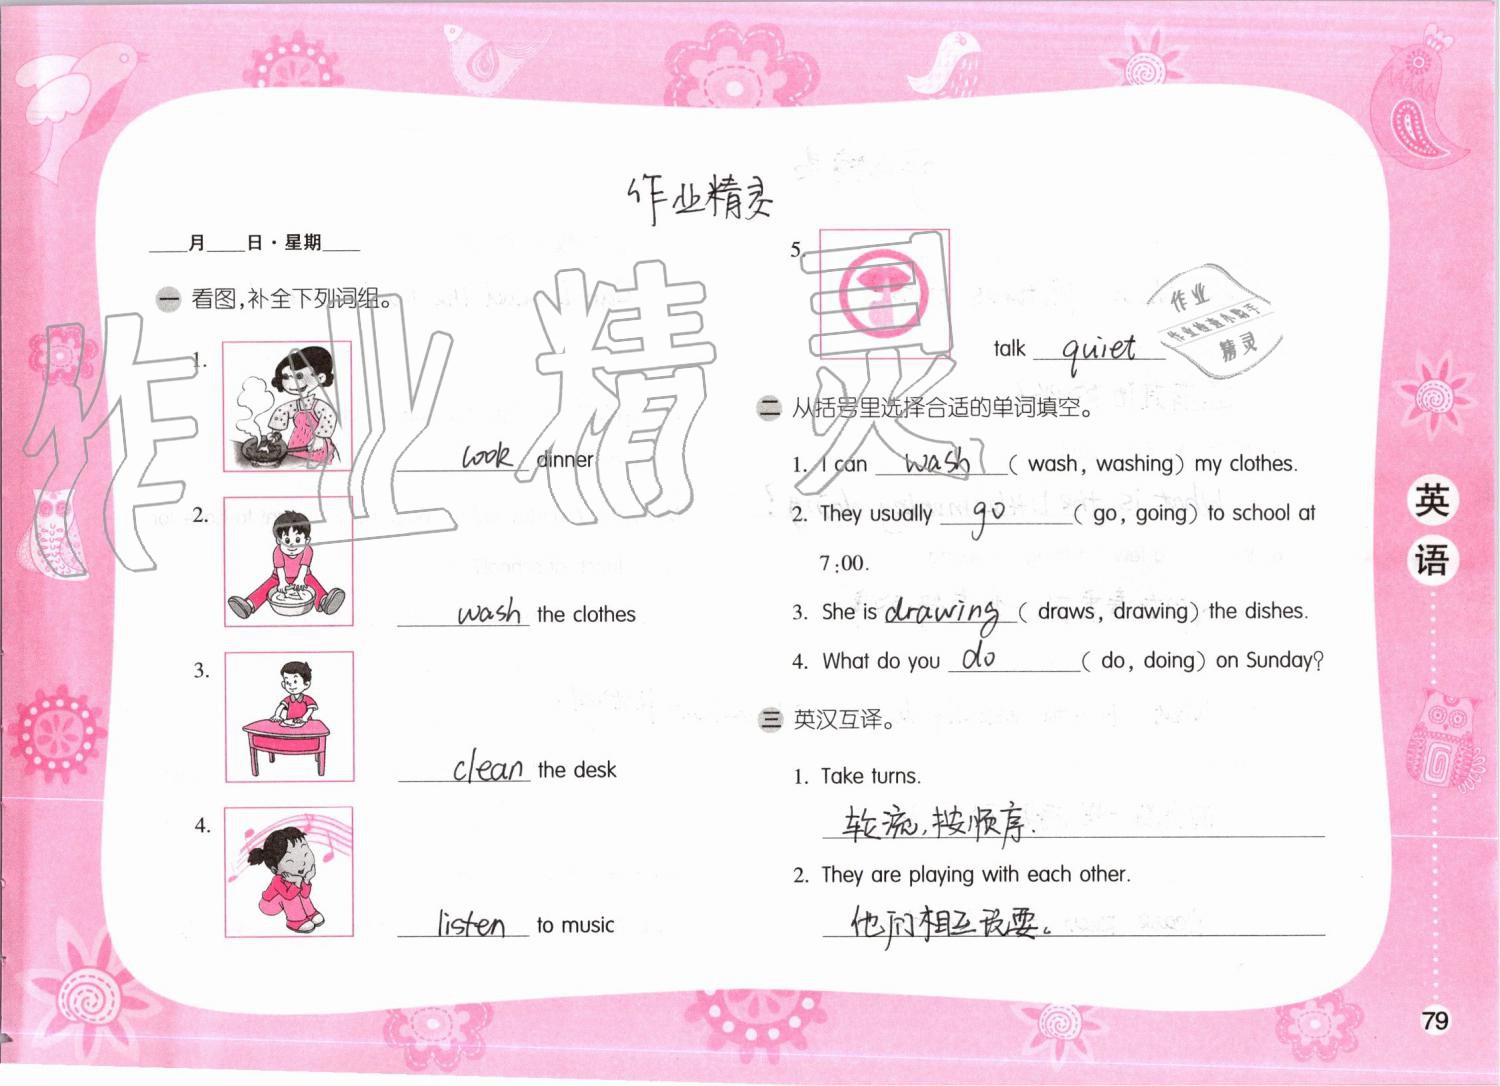 作业精灵
____月____日·星期____
一 看图,补全下列词组。
1.
cook dinner
2.
wash the clothes
3.
clean the desk
4.
listen to music
5.
talk quiet
作业
作业检查小助手
精灵
二 从括号里选择合适的单词填空。
1. I can wash ( wash, washing) my clothes.
2. They usually go ( go, going) to school at
7:00.
3. She is drawing ( draws, drawing) the dishes.
4. What do you do ( do, doing) on Sunday?
三 英汉互译。
1. Take turns.
轮流,按顺序.
2. They are playing with each other.
他们相互玩耍。
英语
79
作业精灵